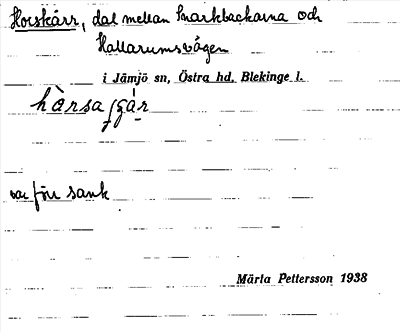 Horskärr, dal mellan Snarkbackarna och
Hallarumsvägen
i Jämjö sn, Östra hd, Blekinge l.
var förr sank
Märta Pettersson 1938